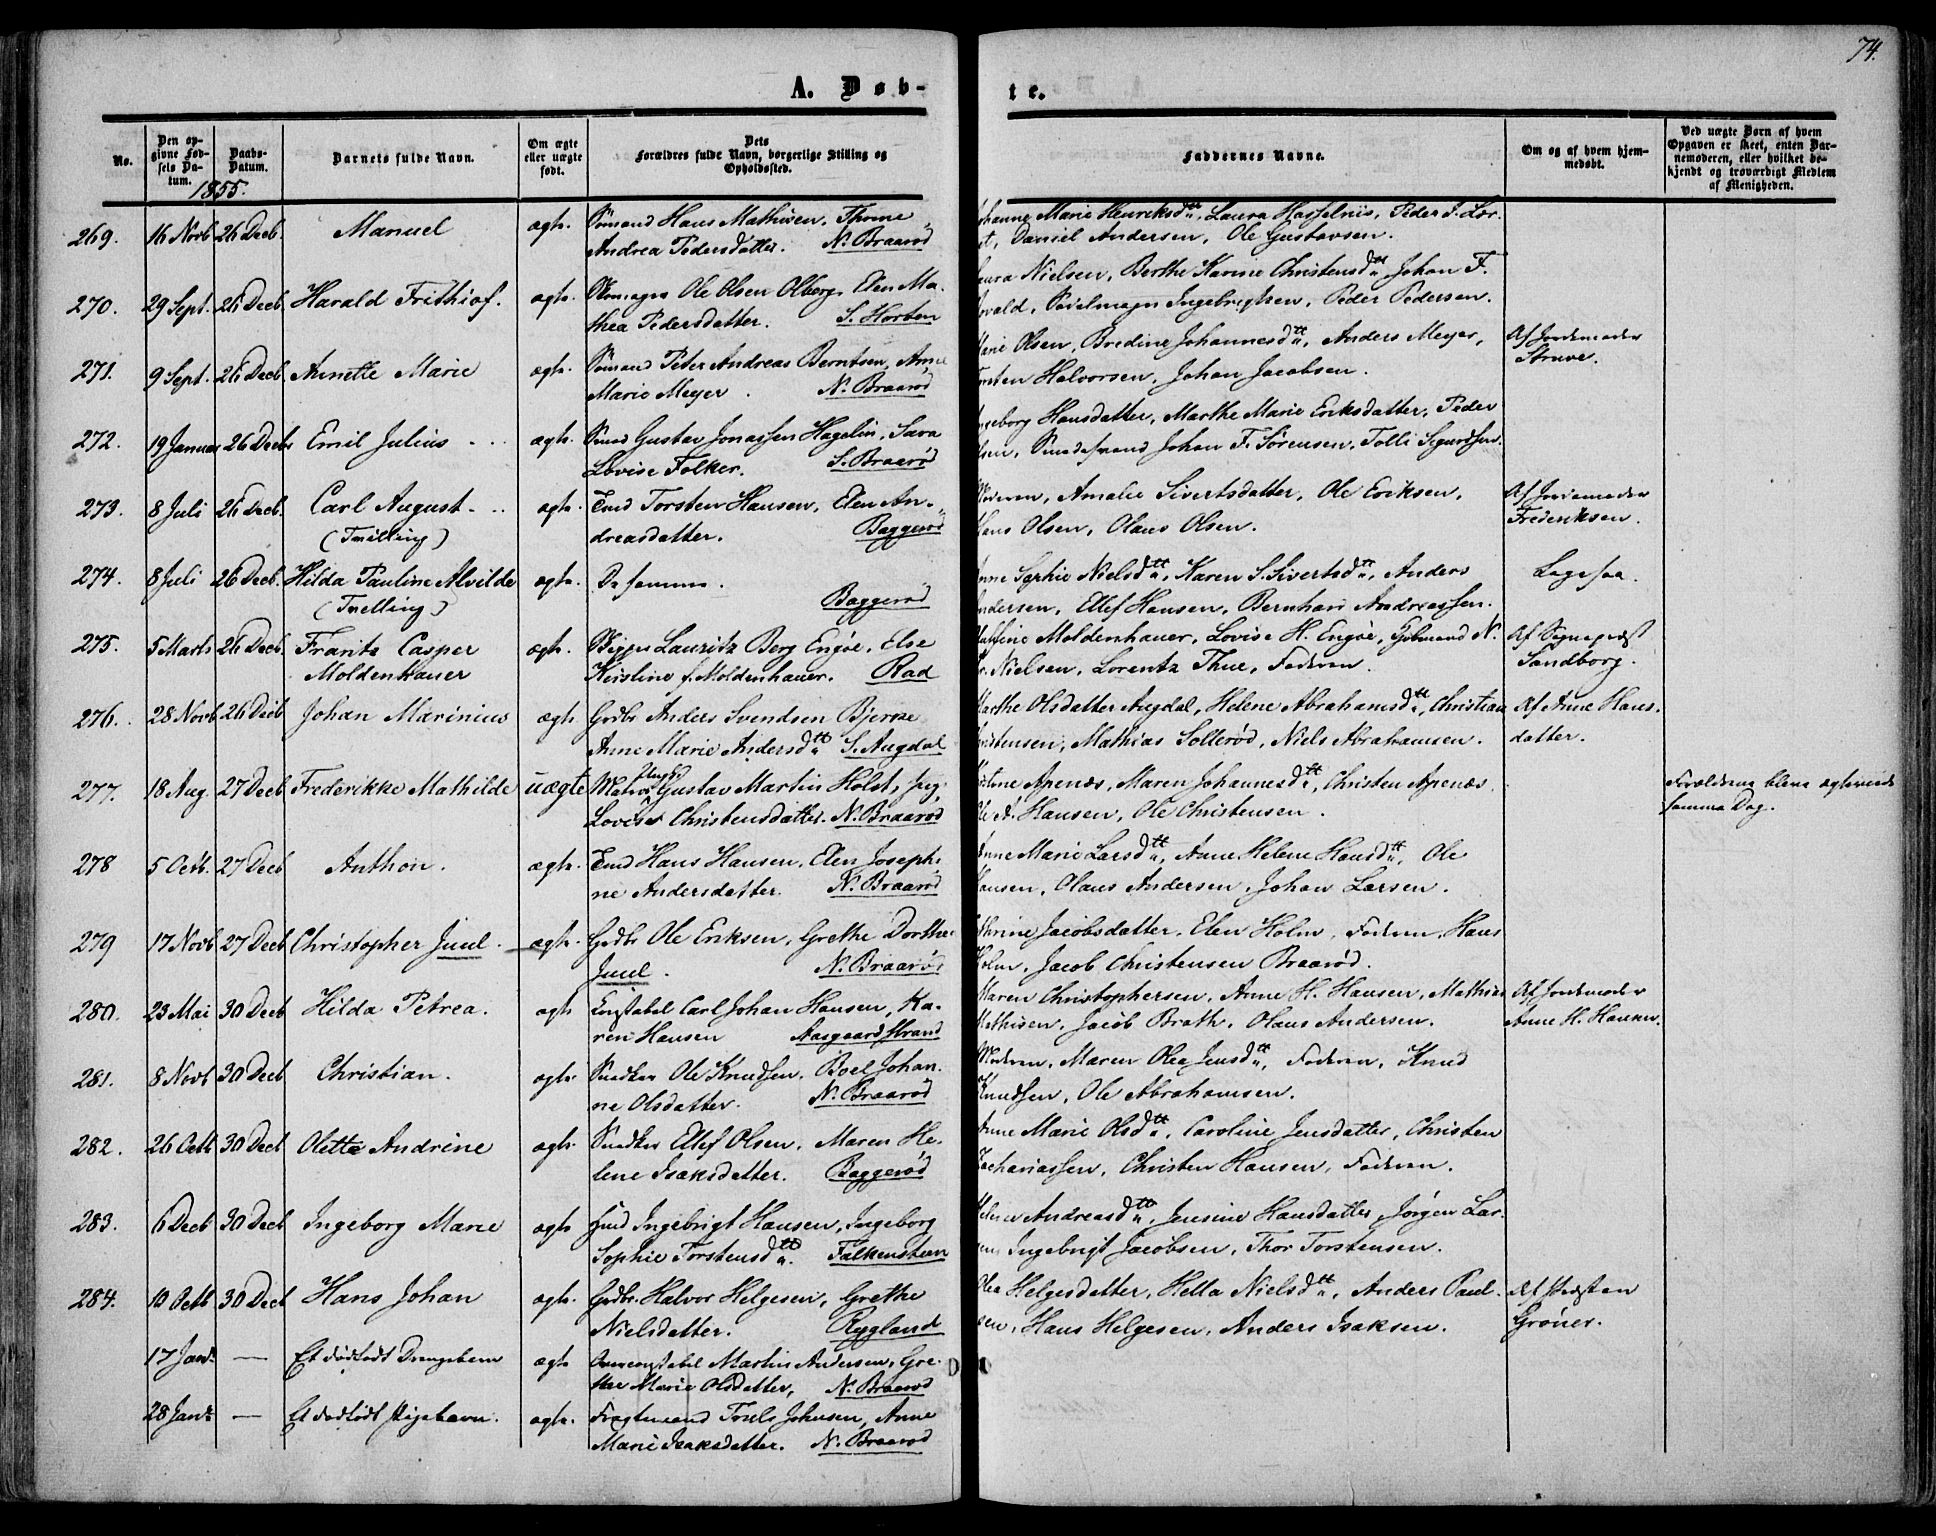 74.
A. Døb-
te.
No.
Den op-
givne Fød-
sels Da-
tum.
Daabs-
Datum.
Barnets fulde Navn.
Om ægte
eller uægte
født.
Dets
Forældres fulde Navn, borgerlige Stilling og
Opholdssted.
Faddernes Navne.
Om og af hvem hjem-
medøbt.
Ved uægte Børn af hvem
Opgaven er skeet, enten Bar-
nemoderen, eller hvilket be-
kjendt og troværdigt Medlem
af Menigheden.
1855.
269. 16 Novb 26 Decb. Manuel ægte. Sømand Hans Mathisen, Thorine
Andrea Pedersdatter. N. Braarød
Marie Henriksdtt, Laura Hasselniis, Peder
Daniel Andersen, Ole Gustavsen.
270. 29 Sept. 26 Decb. Harald Frithiof. ægte. Skomager Ole Olsen Olberg, Elen Ma-
thea Pedersdatter. S. Horten
Nielsen, Berthe Karine Christensdtt, Johan F.
Seielmager Ingebrigtsen, Peder Pedersen.
271. 9 Sept. 26 Decb. Annette Marie ægte. Sømand Peter Andreas Berntsen, Anne
Marie Meyer. N. Braarød
Olsen, Bredine Johannesdtt, Anders Meyer,
Halvorsen, Johan Jacobsen.
Af Jordemoder
Struve.
272. 19 Januar 26 Decb Emil Julius ægte. Smed Gustav Jonassen Hagelin, Sara
Lovise Folker. S. Braarød
Hansdatter, Marthe Marie Eriksdatter, Peder
Johan F. Sørensen, Tolli Sigurdsen.
273. 8 Juli 26 Decb. Carl August ægte. Tmd Torsten Hansen, Elen An-
(Tvilling) dreasdatter. Baggerød
Moderen, Amalie Sivertsdatter, Ole Eriksen,
Hans Olsen, Olaus Olsen.
Af Jordemoder
Frederiksen.
274. 8 Juli 26 Decb. Hilda Pauline Alvilde ægte. De samme.
(Tvelling) Baggerød
Sophie Nielsdtt, Karen S. Sivertsdtt, Anders
Andersen, Ellef Hansen, Bernhard Andreassen.
Ligesaa.
275. 5 Marts 26 Decb. Frantz Casper ægte. Skipper Lauritz Berg Engøe, Else
Moldenhauer Kirstine f. Moldenhauer. Rad
Moldenhauer, Lovise H. Engøe, N.
Nielsen, Lorentz Thue, Faderen.
Af Sognepræst
Sandborg.
276. 28 Novb 26 Decb Johan Marinius ægte Grdbr Anders Svendsen Bjerke
Anne Marie Andersdtt S. Augdal
Marthe Olsdatter Augdal, Helene Abrahamsdtt, Christian
Christensen, Mathias Sollerød, Niels Abrahamsen.
Af Anne Hans-
datter.
277. 18 Aug. 27 Decb Frederikke Mathilde uægte Matros Ungk. Gustav Martin Holst, Pig.
Lovise Christensdatter. N. Braarød
Apenæs, Maren Johannesdtt, Christen Apenæs
Ole A. Hansen, Ole Christensen.
Forældrene bleve ægteviede
samme Dag.
278 5 Octb. 27 Decb Anthon. ægte. Tmd Hans Hansen, Elen Josephi-
ne Andersdatter. N. Braarød
Anne Marie Larsdtt, Anne Helene Hansdtt, Ole
Hansen, Olaus Andersen, Johan Larsen.
279 17 Novb 27 Decb Christopher Juul. ægte. Grdbr Ole Eriksen, Grethe Dorthea
Juul. N. Braarød
Jacobsdatter, Elen Holm, Faderen, Hans
Holm, Jacob Christensen Braarød.
280. 23 Mai 30 Decb Hilda Petrea. ægte Constabel Carl Johan Hansen, Ka-
ren Hansen Aasgaardstrand
Maren Christophersen, Anne H. Hansen, Mathias
Mathisen, Jacob Brath, Olaus Andersen.
Af Jordemoder
Anne H. Hansen.
281. 8 Novb 30 Decb Christian. ægte. Snedker Ole Knudsen, Boel Johan-
ne Olsdatter. N. Braarød
Moderen, Maren Olea Jensdtt, Faderen, Knud
Knudsen, Ole Abrahamsen.
282. 26 Octb 30 Decb Olette Andrine ægte. Snedker Ellef Olsen, Maren He-
lene Isaksdatter. Baggerød
Anne Marie Olsdtt, Caroline Jensdatter, Christen
Zachariassen, Christen Hansen, Faderen.
283. 6 Decb 30 Decb Ingeborg Marie ægte Hmd Ingebrigt Hansen, Ingeborg
Sophie Torstensdtt. Falkensteen
Andreasdtt, Jensine Hansdatter, Jørgen Lar-
sen, Ingebrigt Jacobsen, Thor Torstensen.
284. 10 Octb 30 Decb Hans Johan ægte. Grdbr. Halvor Helgesen, Grethe
Nielsdatter. Rygland
Olea Helgesdatter, Hella Nielsdtt, Anders Paul-
sen, Hans Helgesen, Anders Isaksen.
Af Præsten
Grøner.
17 Janr. — Et dødfødt Drengebarn ægte Overconstabel Martin Andersen, Gre-
the Marie Olsdatter, N. Braarød
28 Janr — Et dødfødt Pigebarn. ægte. Fragtemand Truls Johnsen, Anne
Marie Isaksdatter. N. Braarød